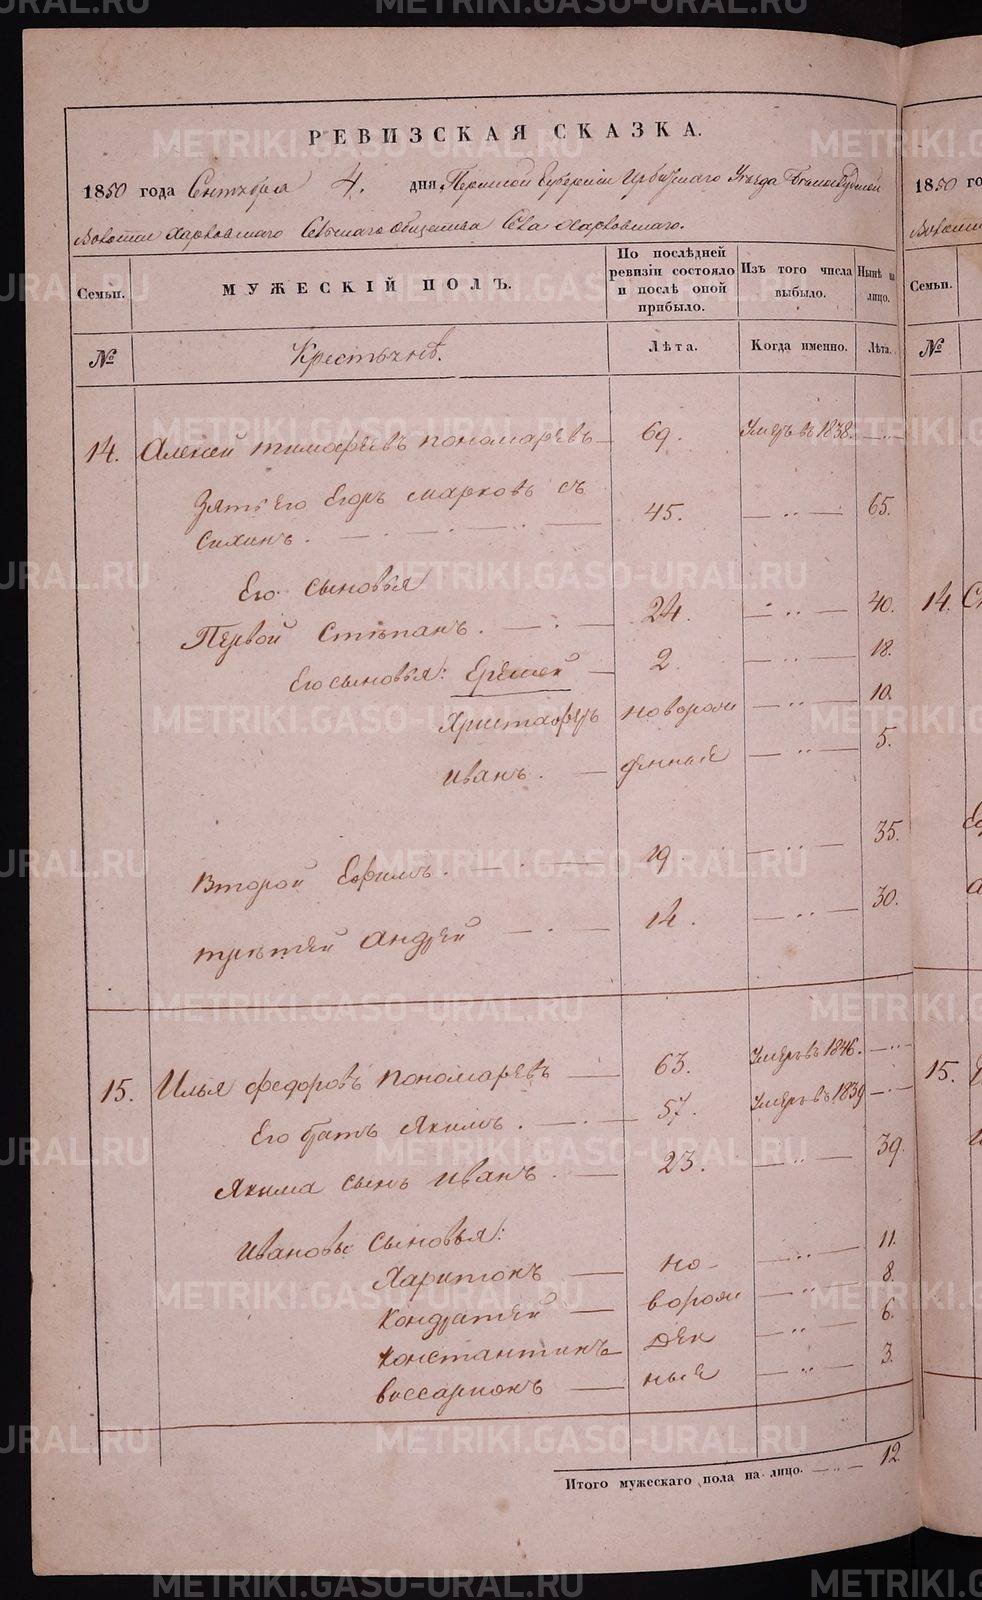 METRIKI.GASO-URAL.RU
РЕВИЗСКАЯ СКАЗКА.
1850 года Сентября 4. дня Пермской Губернии Ирбитскаго Уезда
Волости Харловскаго Сельскаго Общества Села Харловскаго.
Семьи.
МУЖЕСКІЙ ПОЛЪ.
По послѣдней ревизіи состояло и послѣ оной прибыло.
Изъ того числа выбыло.
Нынѣ на лицо.
№
Крестьянѣ.
Лѣта.
Когда именно.
Лѣта.
14. Алексей тимофеевъ пономаревъ — 69. Умеръ въ 1838. — ..
Зять Его Егоръ марковъ
45. — .. — 65.
Его сыновья
Первой Степанъ. — . — 24. — .. — 40.
Его сыновья: Еремей — 2. — .. — 18.
Христофоръ новорож — .. — 10.
иванъ. — денные — .. — 5.
второй Ефимъ. — . — 19. — .. — 35.
третей андрей — . — 14. — .. — 30.
15. Илья федоровъ пономаревъ — 63. Умеръ въ 1846. — ..
Его братъ Якимъ. — . — 57. Умеръ въ 1839 — ..
Якима сынъ иванъ. — 23. — .. — 39.
ивановы сыновья:
Харитонъ — но- — .. — 11.
кондратей — ворож — .. — 8.
константинъ — ден — .. — 6.
виссарионъ — ные — .. — 3.
Итого мужескаго пола на лицо. — .. — 12.
1850 го
Волости
Семьи.
№
14.
15.